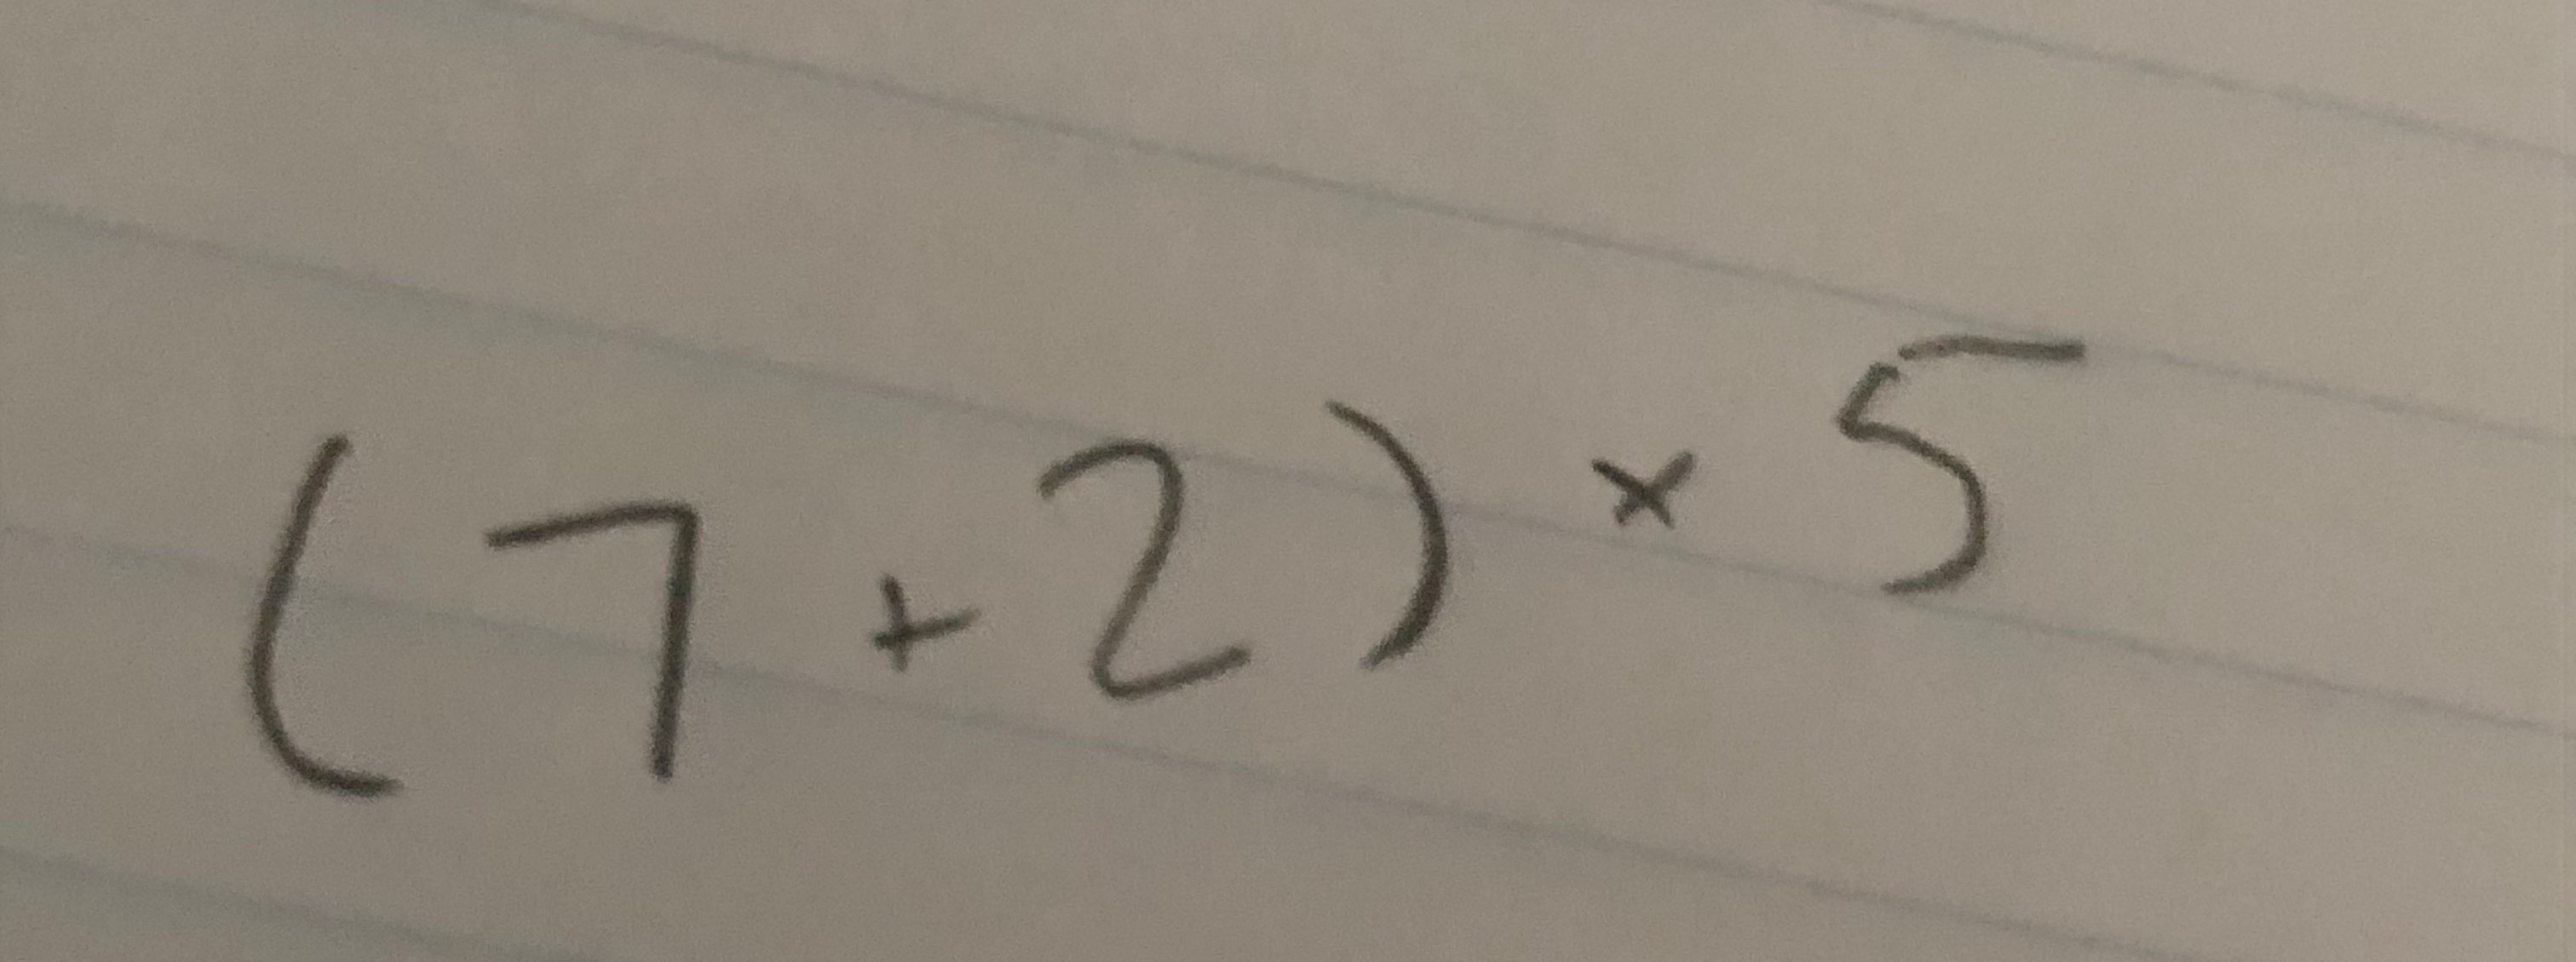 (7+2) × 5